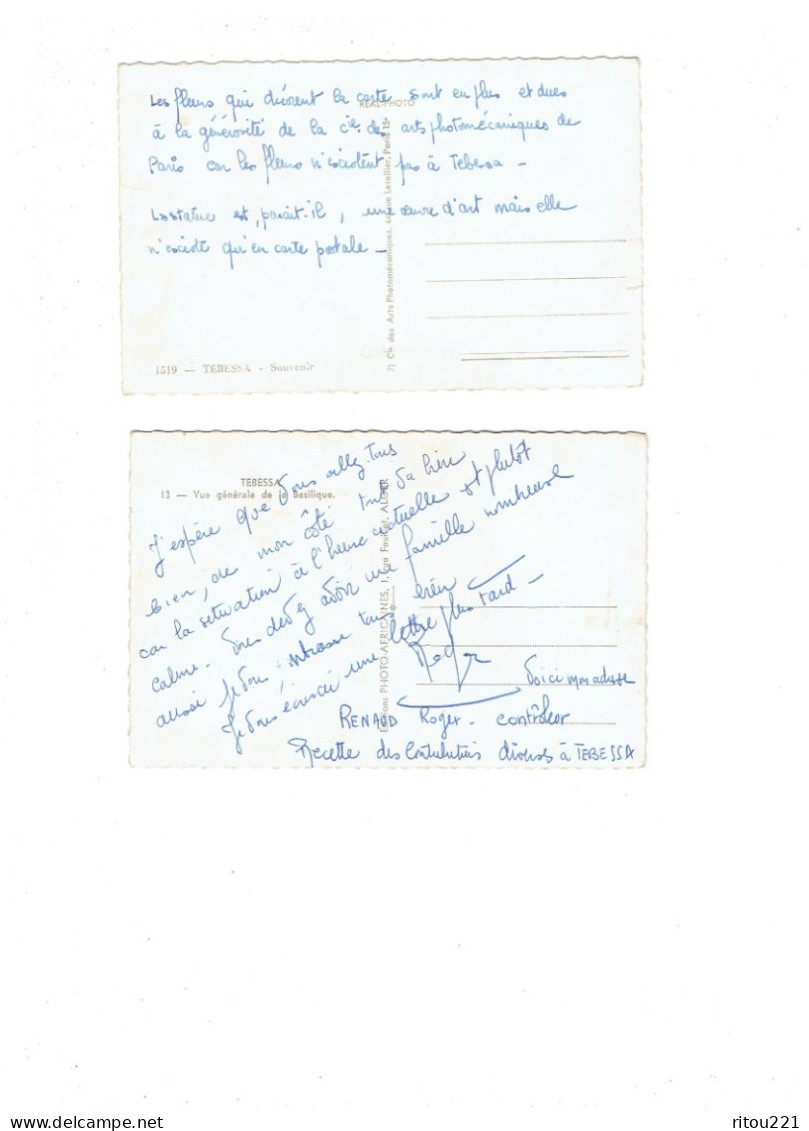 Les fleurs qui décorent la carte sont en plus et dues
REAL-PHOTO
à la générosité de la Cie. des arts photomécaniques de
Paris car les fleurs n'existent pas à Tebessa -
La statue est, parait-il, une œuvre d'art mais elle
n'existe qu'en carte postale -
Cie des Arts Photomécaniques, rue Letellier, Paris 15e
1519 — TEBESSA - Souvenir
TEBESSA
13 — Vue générale de la Basilique.
J'espère que vous allez tous
bien, de mon côté tout va bien
car la situation à l'heure actuelle est plutot
calme. Vous devez avoir une famille nombreuse
aussi je vous embrasse tous bien
Je vous écrirai une lettre plus tard -
Roger
Editions PHOTO-AFRICAINES, 1, rue ALGER
Voici mon adresse
RENAUD Roger - contrôleur
Recette des Contributions diverses à TEBESSA
ritou221